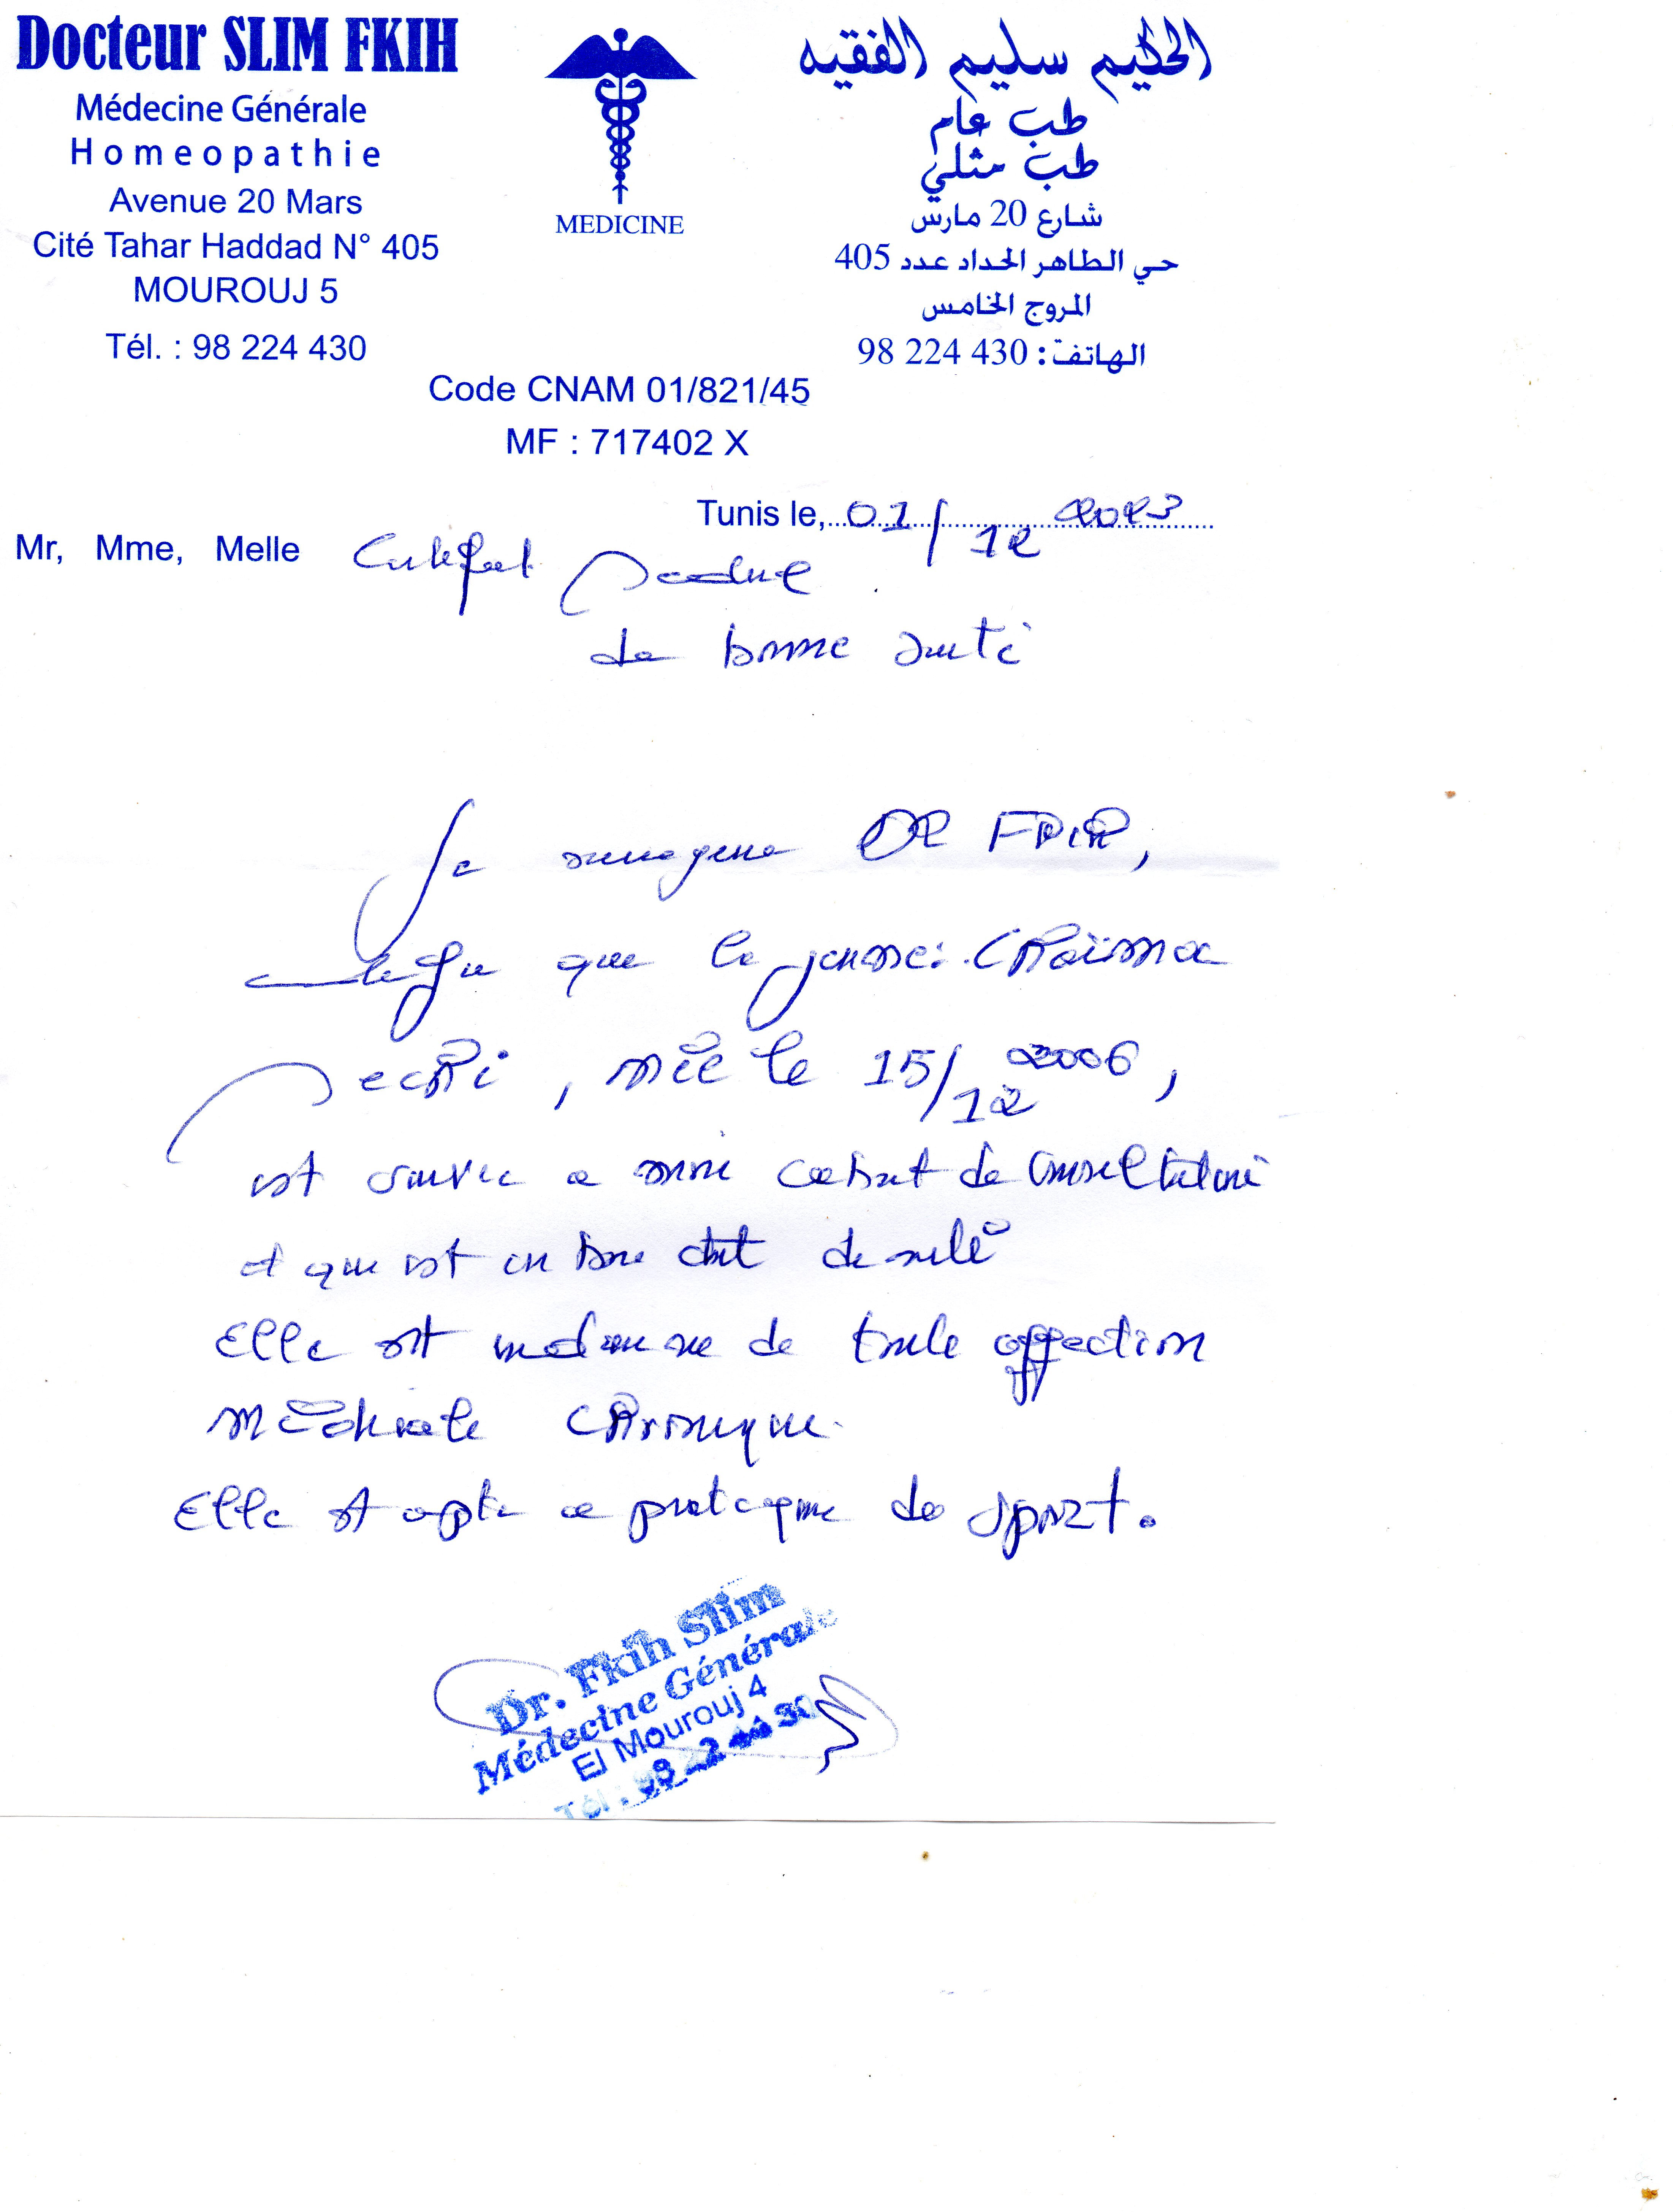 Docteur SLIM FKIH
Médecine Générale
Homeopathie
Avenue 20 Mars
Cité Tahar Haddad N° 405
MOUROUJ 5
Tél. : 98 224 430
MEDICINE
الحكيم سليم الفقيه
طب عام
طب مثلي
شارع 20 مارس
حي الطاهر الحداد عدد 405
المروج الخامس
الهاتف: 430 224 98
Code CNAM 01/821/45
MF : 717402 X
Tunis le, 01/12 2023
Mr, Mme, Melle Certificat médical
de bonne santé
Je soussigné DR FKIH,
certifie que la jeune: Chaïma
, née le 15/12 2006,
est suivie a mon cabinet de consultation
et que est en bon état de santé
Elle est indemne de toute affection
Médicale chronique.
Elle est apte a pratique de sport.
Dr. Fkih Slim
Médecine Générale
El Mourouj 4
Tél.